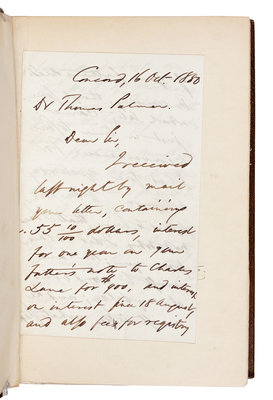 Concord, 16 Oct. 1850
Dr Thomas Palmer.
Dear Sir,
I received
last night by mail
your letter, containing
55 10/100 dollars, interest
for one year on your
father's note to Charles
Lane for 900, and interest
on interest since 18 August,
and also fee for registry